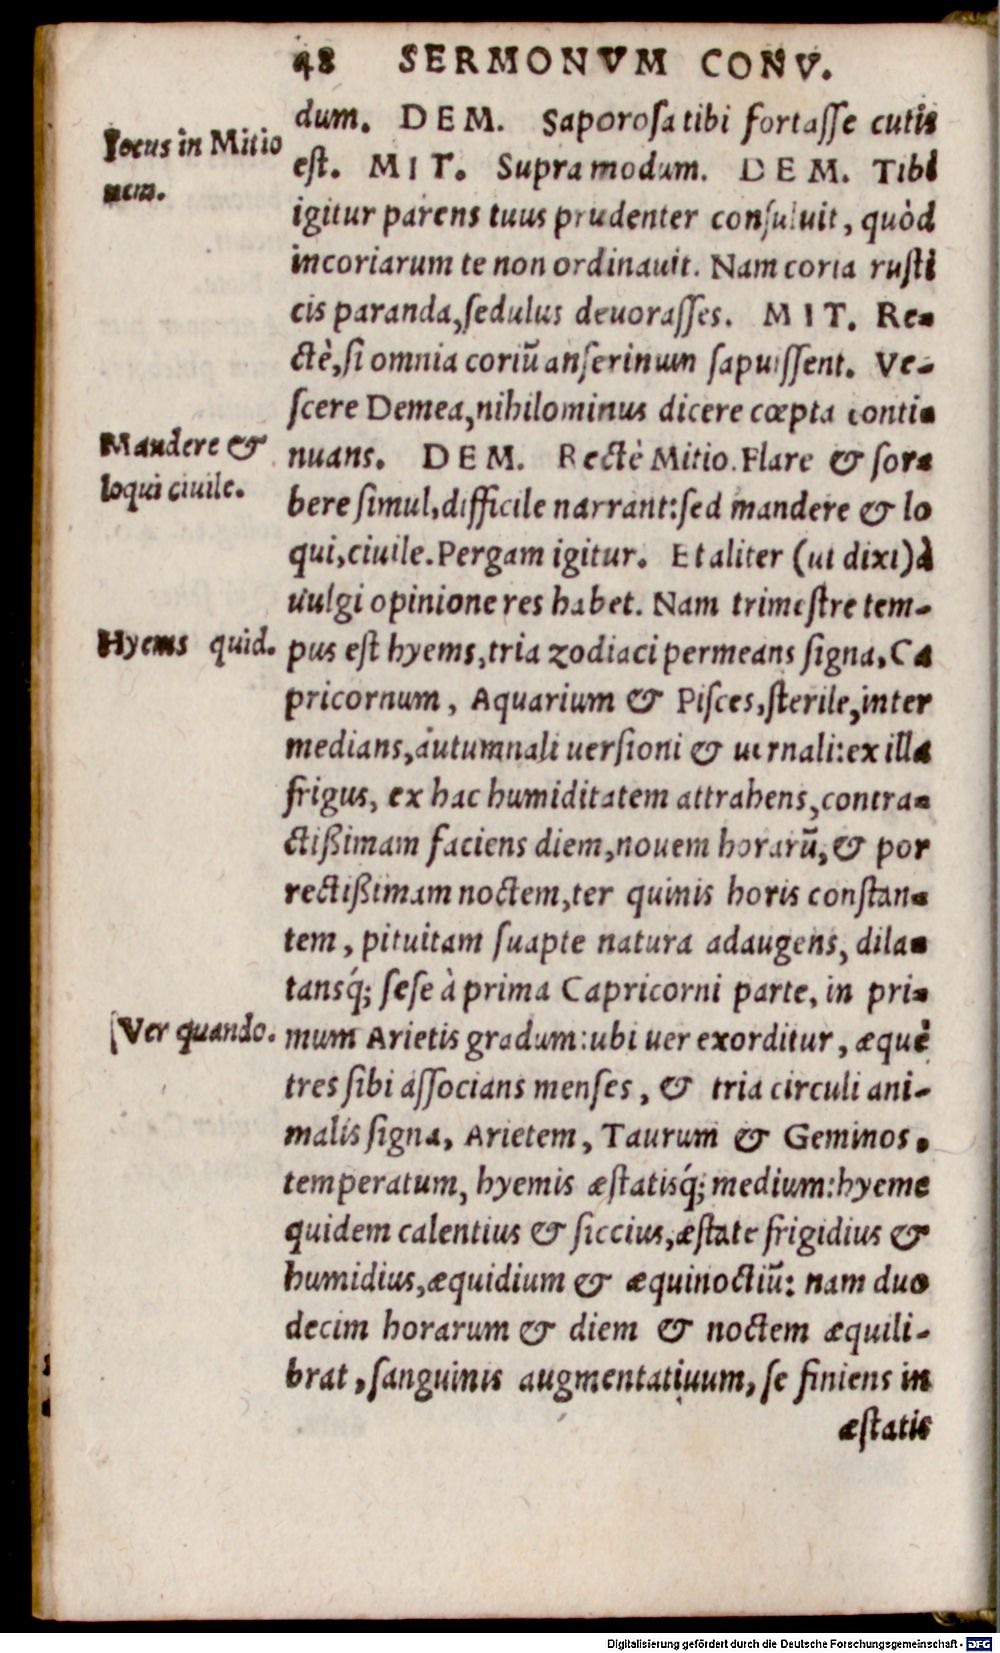 48 SERMONVM CONV.
Iocus in Mitio
nem.
dum. DEM. Saporosa tibi fortasse cutis
est. MIT. Supra modum. DEM. Tibi
igitur parens tuus prudenter consuluit, quòd
in coriarum te non ordinauit. Nam coria rusti
cis paranda, sedulus deuorasses. MIT. Re-
ctè, si omnia coriũ anserinum sapuissent. Ve-
scere Demea, nihilominus dicere cœpta conti-
Mandere &
loqui ciuile.
nuans. DEM. Rectè Mitio. Flare & sor-
bere simul, difficile narrant: sed mandere & lo
qui, ciuile. Pergam igitur. Et aliter (ut dixi) à
uulgi opinione res habet. Nam trimestre tem-
Hyems quid.
pus est hyems, tria zodiaci permeans signa, Ca
pricornum, Aquarium & Pisces, sterile, inter
medians, autumnali uersioni & uernali: ex illa
frigus, ex hac humiditatem attrahens, contra-
ctißimam faciens diem, nouem horarũ, & por
rectißimam noctem, ter quinis horis constan-
tem, pituitam suapte natura adaugens, dila-
tansq́; sese à prima Capricorni parte, in pri-
Ver quando.
mum Arietis gradum: ubi uer exorditur, æquè
tres sibi associans menses, & tria circuli ani-
malis signa, Arietem, Taurum & Geminos.
temperatum, hyemis æstatisq́; medium: hyeme
quidem calentius & siccius, æstate frigidius &
humidius, æquidium & æquinoctiũ: nam duo
decim horarum & diem & noctem æquili-
brat, sanguinis augmentatiuum, se finiens in
æstatis
Digitalisierung gefördert durch die Deutsche Forschungsgemeinschaft - DFG